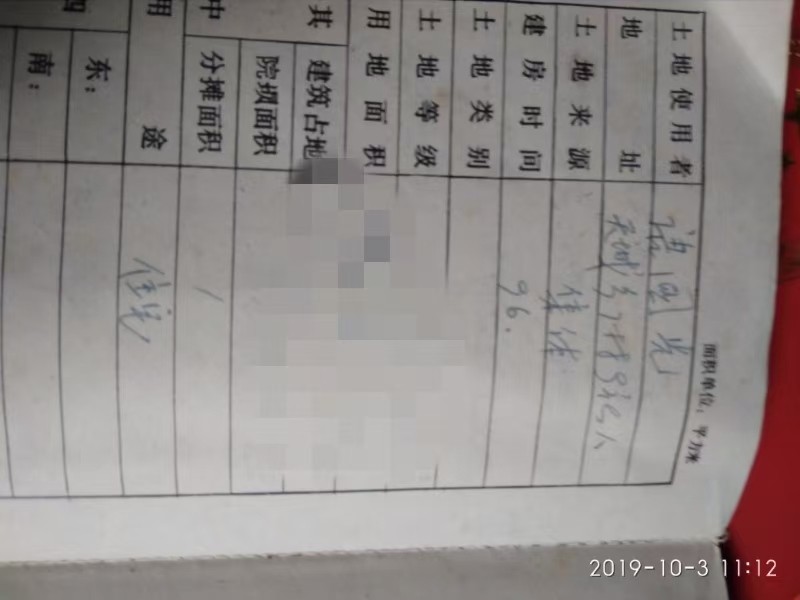 面积单位：平方米
土地使用者 谌国光
地址
土地来源 集体
建房时间 96.
土地类别
土地等级
用地面积
其中
建筑占地
院坝面积
分摊面积 /
用途 住宅
四
东：
南：
2019-10-3 11:12